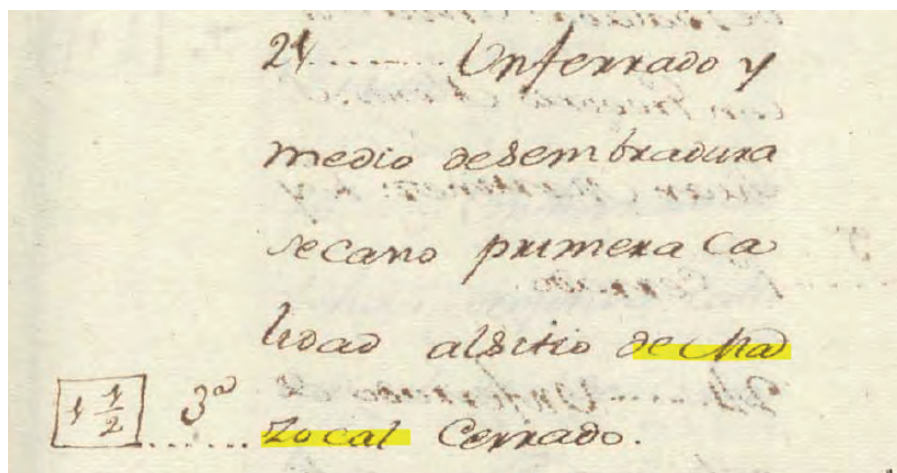 21........Un ferrado y
medio desembradura
secano primera Ca
lidad alsitio de Ma
1 1/2 3ª ......zocal Cerrado.